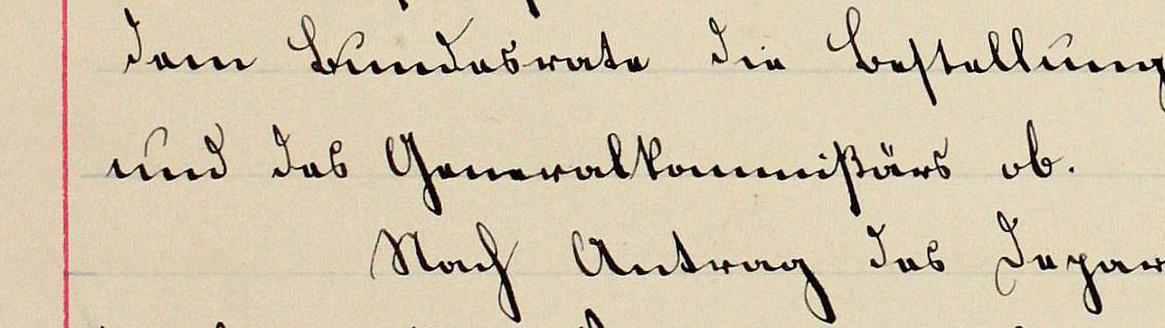 dem Bundesrate die Bestellung
und des Generalkommißärs ob.
Nach Antrag des Depar